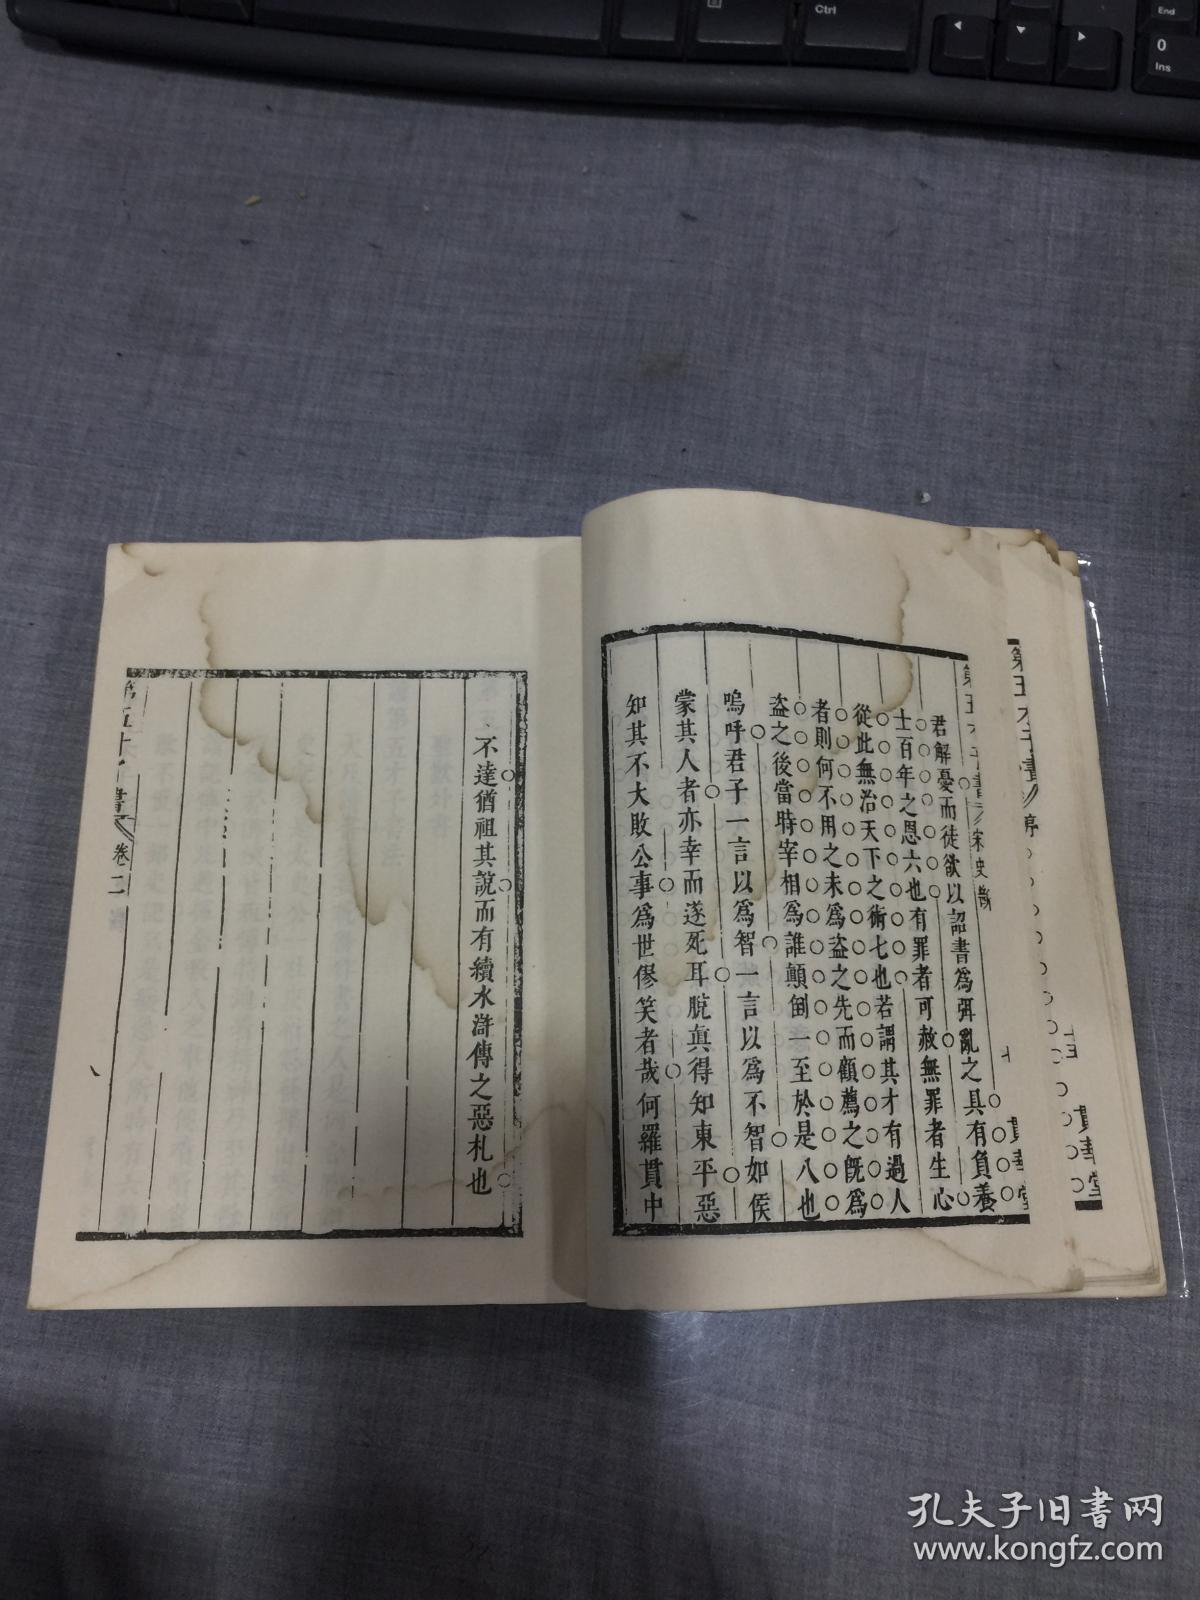 第五才子書 序
貫華堂
第五才子書 宋史斷
七 貫華堂
君解憂而徒欲以詔書爲弭亂之具有負養
士百年之恩六也有罪者可赦無罪者生心
從此無治天下之術七也若謂其才有過人
者則何不用之未爲盜之先而顧薦之旣爲
盜之後當時宰相爲誰顛倒一至於是八也
嗚呼君子一言以爲智一言以爲不智如侯
蒙其人者亦幸而遂死耳脫眞得知東平惡
知其不大敗公事爲世僇笑者哉何羅貫中
不達猶祖其說而有續水滸傳之惡札也
第五才子書 卷二
Ctrl
End
0
Ins
孔夫子旧書网
www.kongfz.com